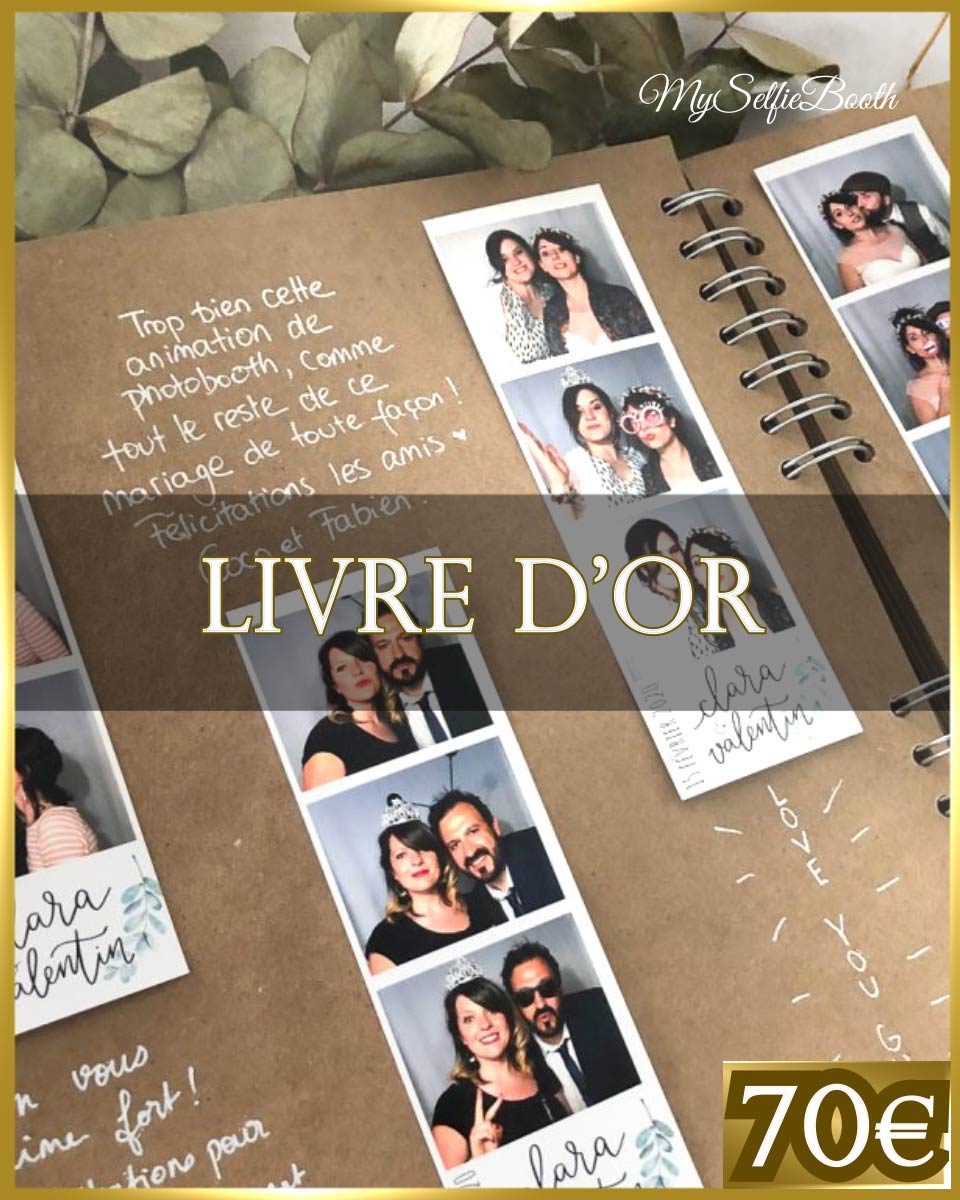 MySelfieBooth
Trop bien cette
animation de
photobooth, comme
tout le reste de ce
mariage de toute façon !
Félicitations les amis
Coco et Fabien.
LIVRE D'OR
clara
valentin
LOVE YOU
vous
fort !
pour
clara
70€